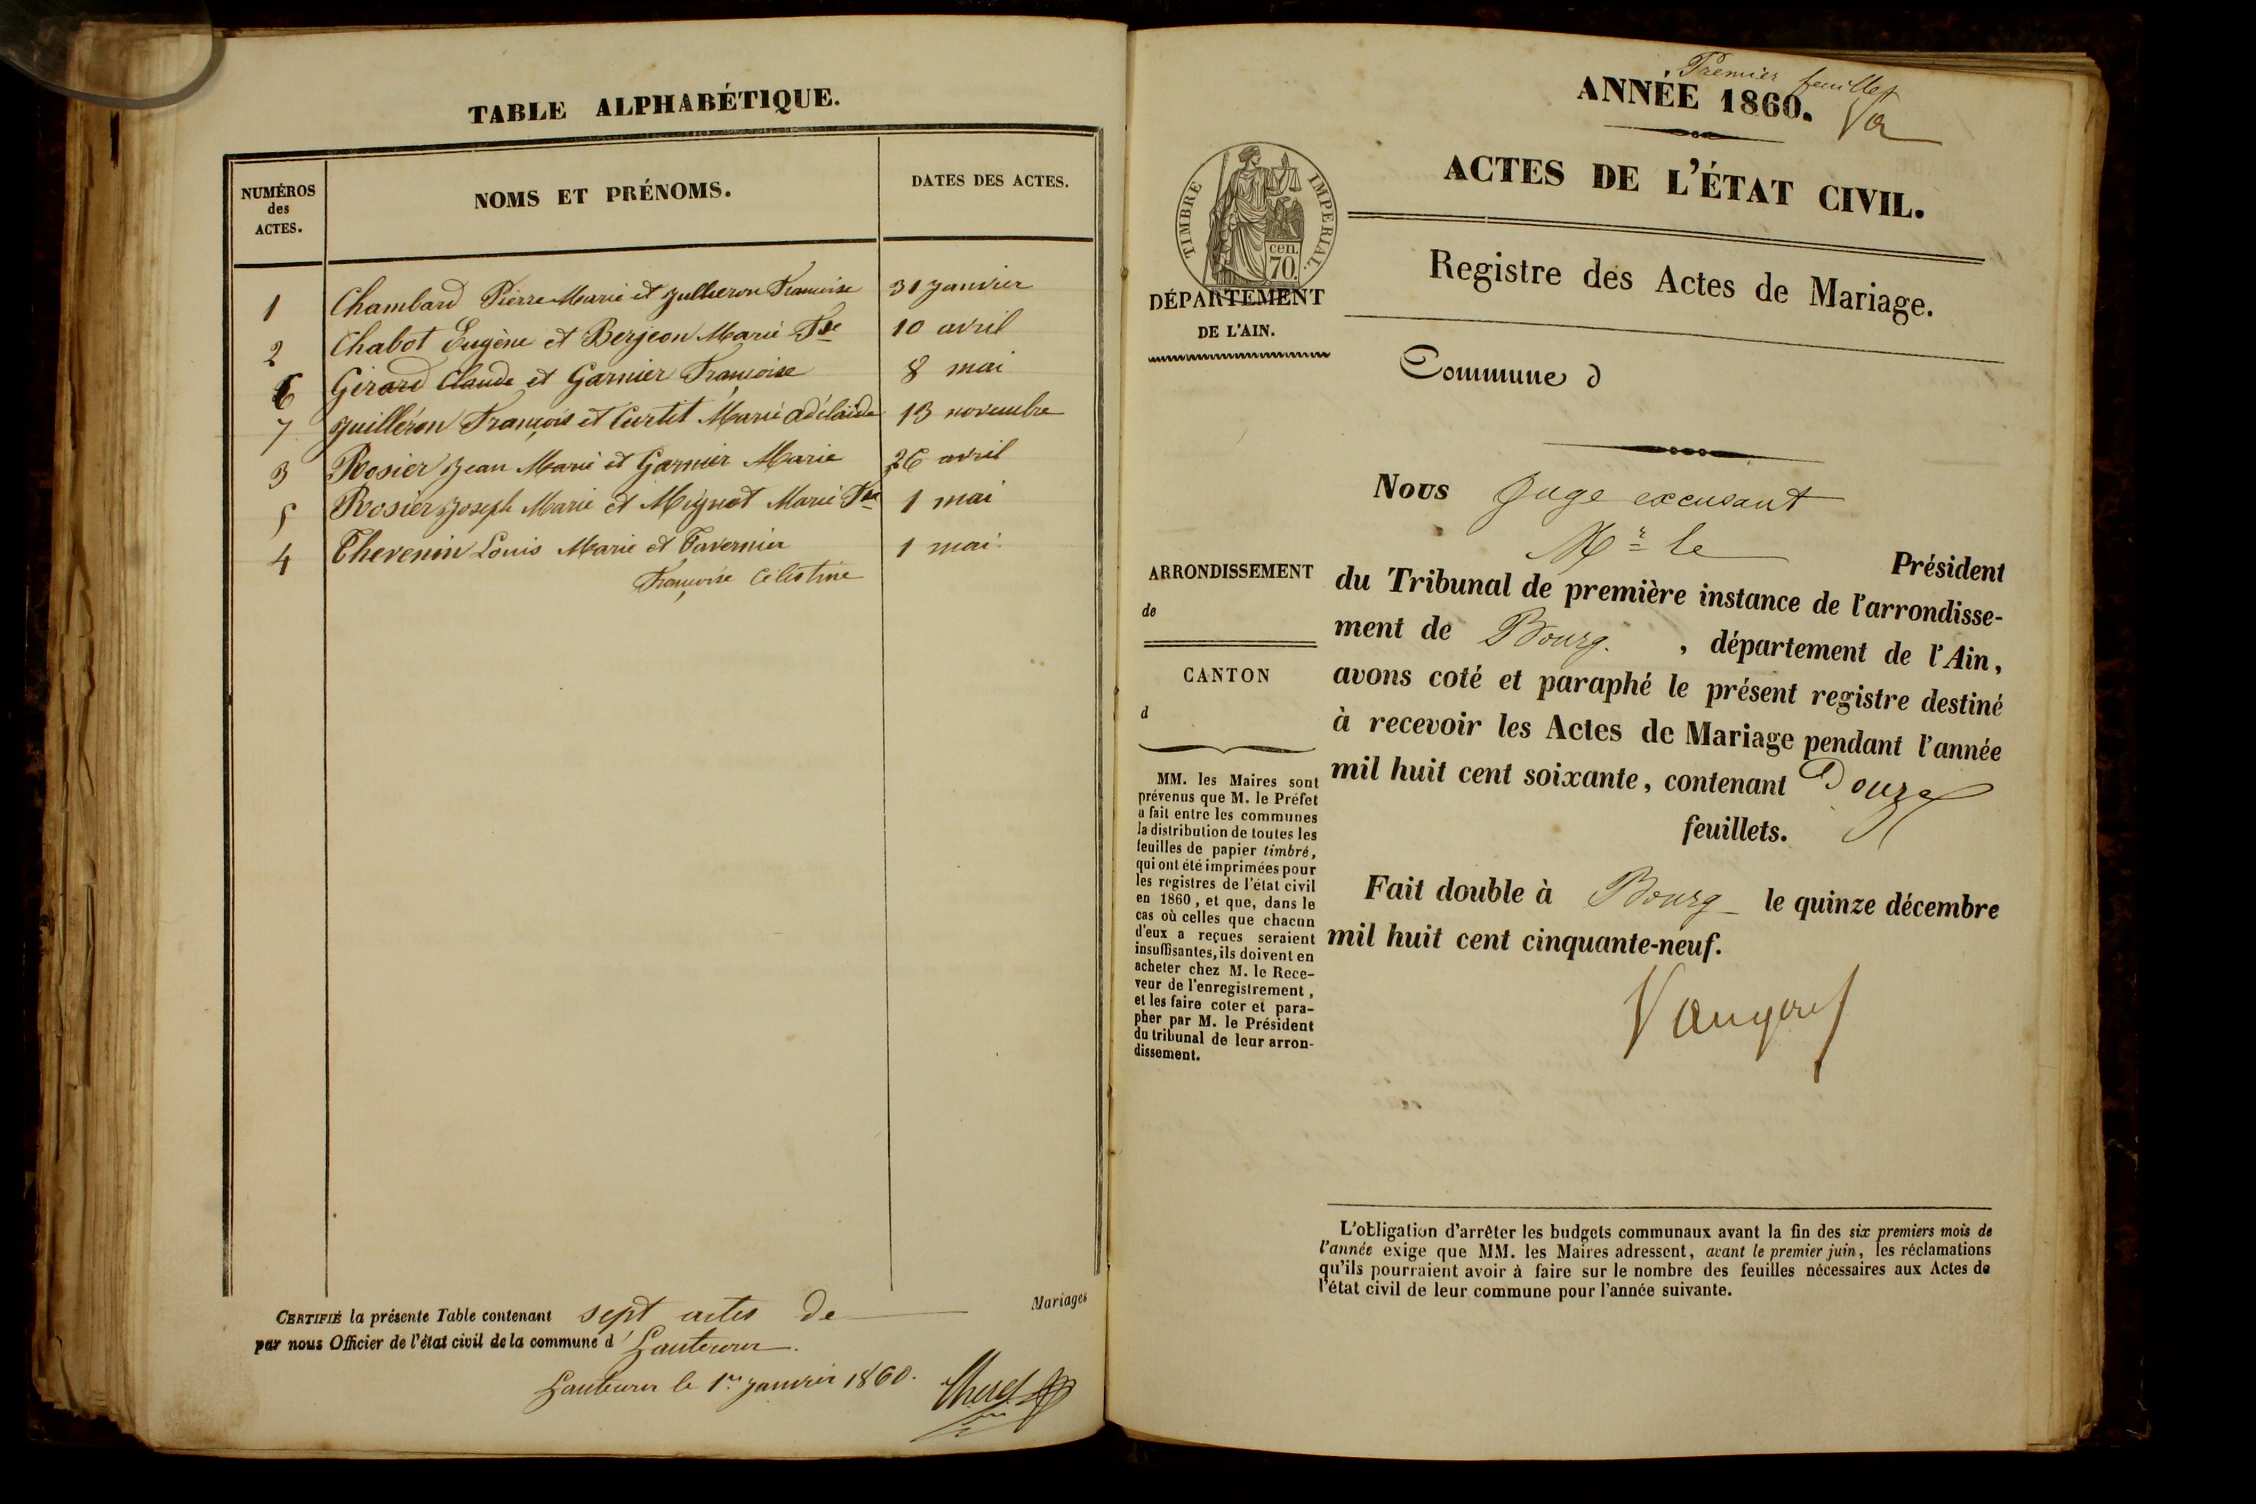 TABLE ALPHABÉTIQUE.
NUMÉROS des ACTES.
NOMS ET PRÉNOMS.
DATES DES ACTES.
1 Chambard Pierre Marie et Juilleron Françoise 31 janvier
2 Chabot Eugène et Berjeon Marie Fse 10 avril
6 Girard Claude et Garnier Françoise 8 mai
7 Juilléron François et Curtit Marie adélaïde 13 novembre
3 Rosier Jean Marie et Garnier Marie 26 avril
5 Rosier Joseph Marie et Mignot Marie Fse 1 mai
4 Thevenin Louis Marie et Tavernier 1 mai
Françoise Célestine
CERTIFIÉ la présente Table contenant sept actes de Mariages
par nous Officier de l'état civil de la commune d'
le 1er janvier 1860.
Premier feuillet
Va
ANNÉE 1860.
ACTES DE L'ÉTAT CIVIL.
Registre des Actes de Mariage.
TIMBRE IMPERIAL.
cen.
70.
DÉPARTEMENT
DE L'AIN.
Commune d
Nous Juge excusant
Mr le Président
du Tribunal de première instance de l'arrondisse-
ment de Bourg. , département de l'Ain,
avons coté et paraphé le présent registre destiné
à recevoir les Actes de Mariage pendant l'année
mil huit cent soixante, contenant Douze
feuillets.
Fait double à Bourg le quinze décembre
mil huit cent cinquante-neuf.
ARRONDISSEMENT
de
CANTON
d
MM. les Maires sont
prévenus que M. le Préfet
a fait entre les communes
la distribution de toutes les
feuilles de papier timbré,
qui ont été imprimées pour
les registres de l'état civil
en 1860, et que, dans le
cas où celles que chacun
d'eux a reçues seraient
insuffisantes, ils doivent en
acheter chez M. le Rece-
veur de l'enregistrement,
et les faire coter et para-
pher par M. le Président
du tribunal de leur arron-
dissement.
L'obligation d'arrêter les budgets communaux avant la fin des six premiers mois de
l'année exige que MM. les Maires adressent, avant le premier juin, les réclamations
qu'ils pourraient avoir à faire sur le nombre des feuilles nécessaires aux Actes de
l'état civil de leur commune pour l'année suivante.